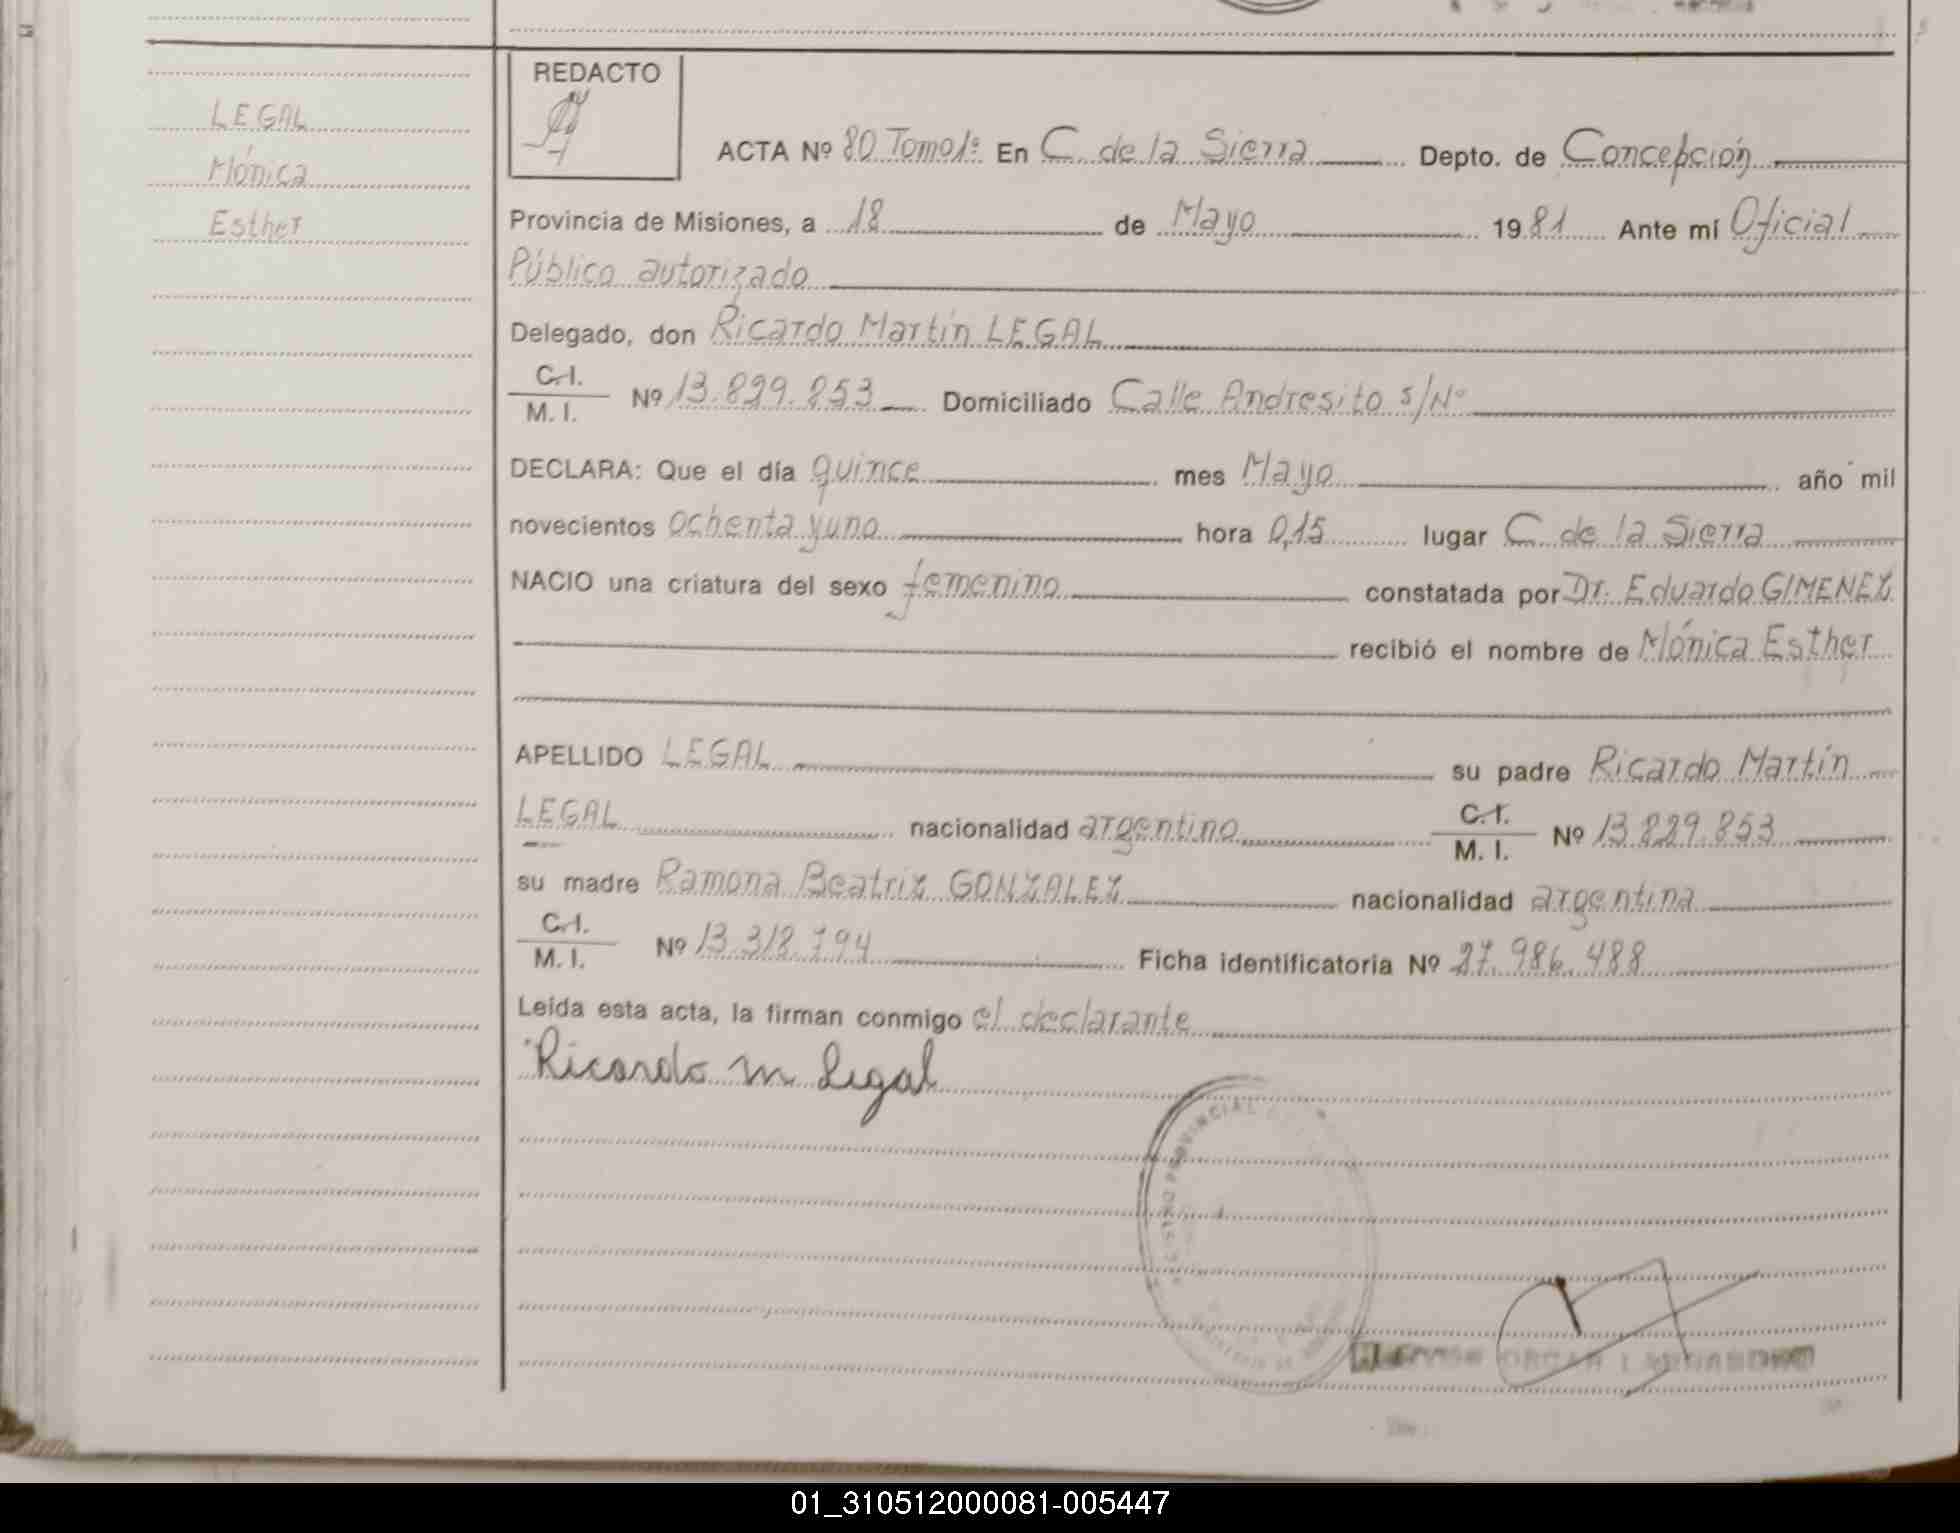 LEGAL
Mónica
Esther
REDACTO
ACTA Nº 80 Tomo 1º En C. de la Sierra Depto. de Concepción
Provincia de Misiones, a 18 de Mayo 1981 Ante mí Oficial
Público autorizado
Delegado, don Ricardo Martín LEGAL
C.I.
M. I. Nº 13.829.853 Domiciliado Calle Andresito s/Nº
DECLARA: Que el día quince mes Mayo año mil
novecientos ochenta y uno hora 0,15 lugar C. de la Sierra
NACIO una criatura del sexo femenino constatada por Dr. Eduardo GIMENEZ
recibió el nombre de Mónica Esther
APELLIDO LEGAL su padre Ricardo Martín
LEGAL nacionalidad argentino C.I.
M. I. Nº 13.829.853
su madre Ramona Beatriz GONZALEZ nacionalidad argentina
C.I.
M. I. Nº 13.318.794 Ficha identificatoria Nº 27.986.488
Leída esta acta, la firman conmigo el declarante
Ricardo M Legal
REGISTRO PROVINCIAL
OSCAR
01_310512000081-005447